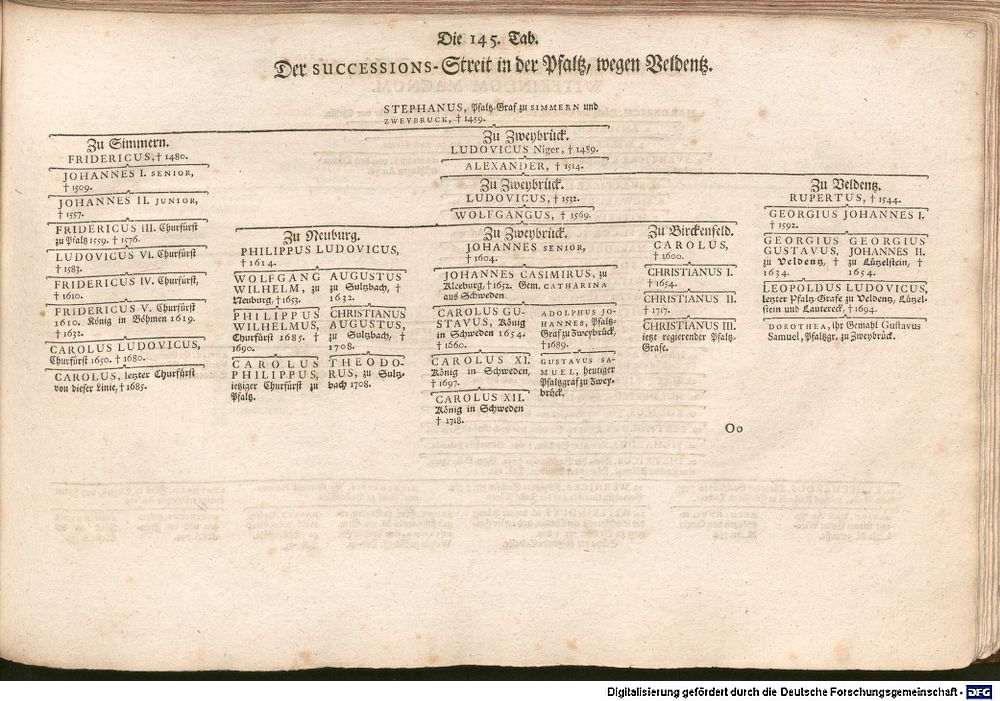 Die 145. Tab.
Der SUCCESSIONS-Streit in der Pfaltz, wegen Veldentz.
STEPHANUS, Pfaltz-Graf zu SIMMERN und
ZWEYBRUCK, † 1459.
Zu Simmern.
FRIDERICUS, † 1480.
JOHANNES I. SENIOR,
† 1509.
JOHANNES II. JUNIOR,
† 1557.
FRIDERICUS III. Churfürst
zu Pfaltz 1559. † 1576.
LUDOVICUS VI. Churfürst
† 1583.
FRIDERICUS IV. Churfürst,
† 1610.
FRIDERICUS V. Churfürst
1610. König in Böhmen 1619.
† 1632.
CAROLUS LUDOVICUS,
Churfürst 1650. † 1680.
CAROLUS, letzter Churfürst
von dieser Linie, † 1685.
Zu Zweybrück.
LUDOVICUS Niger, † 1489.
ALEXANDER, † 1514.
Zu Zweybrück.
LUDOVICUS, † 1532.
WOLFGANGUS, † 1569.
Zu Neuburg.
PHILIPPUS LUDOVICUS,
† 1614.
WOLFGANG
WILHELM, zu
Neuburg, † 1653.
PHILIPPUS
WILHELMUS,
Churfürst 1685. †
1690.
CAROLUS
PHILIPPUS,
jetziger Churfürst zu
Pfaltz.
AUGUSTUS
zu Sultzbach, †
1632.
CHRISTIANUS
AUGUSTUS,
zu Sultzbach, †
1708.
THEODO-
RUS, zu Sultz-
bach 1708.
Zu Zweybrück.
JOHANNES SENIOR,
† 1604.
JOHANNES CASIMIRUS, zu
Kleeburg, † 1652. Gem. CATHARINA
aus Schweden.
CAROLUS GU-
STAVUS, König
in Schweden 1654.
† 1660.
CAROLUS XI.
König in Schweden,
† 1697.
CAROLUS XII.
König in Schweden
† 1718.
ADOLPHUS JO-
HANNES, Pfaltz-
Graf zu Zweybrück,
† 1689.
GUSTAVUS SA-
MUEL, heutiger
Pfaltzgraf zu Zwey-
brück.
Zu Birckenfeld.
CAROLUS,
† 1600.
CHRISTIANUS I.
† 1654.
CHRISTIANUS II.
† 1717.
CHRISTIANUS III.
jetzt regierender Pfaltz-
Grafe.
Zu Veldentz.
RUPERTUS, † 1544.
GEORGIUS JOHANNES I.
† 1592.
GEORGIUS
GUSTAVUS,
zu Veldentz, †
1634.
GEORGIUS
JOHANNES II.
zu Lützelstein, †
1654.
LEOPOLDUS LUDOVICUS,
letzter Pfaltz-Grafe zu Veldentz, Lützel-
stein und Lautereck, † 1694.
DOROTHEA, ihr Gemahl Gustavus
Samuel, Pfaltzgr. zu Zweybrück.
Oo
Digitalisierung gefördert durch die Deutsche Forschungsgemeinschaft - DFG